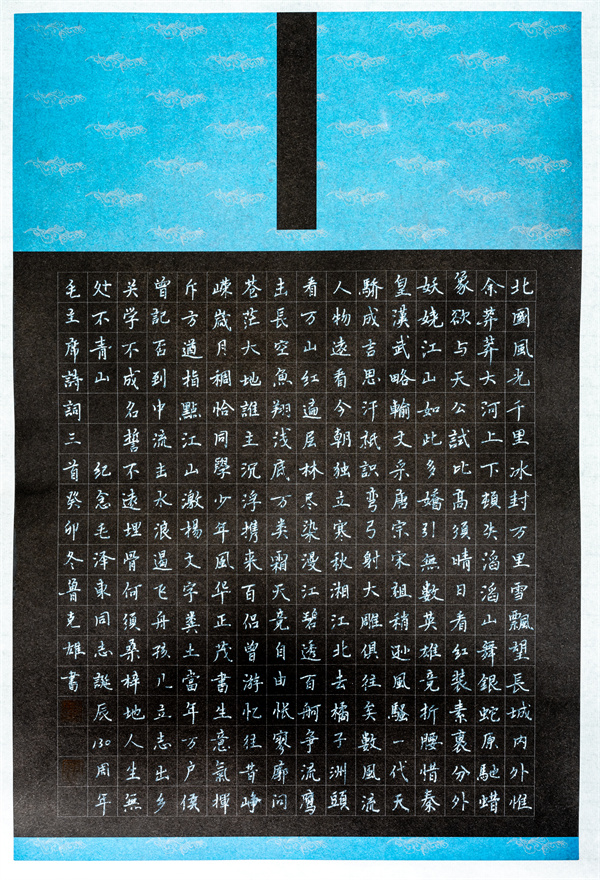 北國風光千里冰封万里雪飄望長城内外惟
余莽莽大河上下頓失滔滔山舞銀蛇原馳蜡
象欲与天公試比髙須晴日看红装素裹分外
妖娆江山如此多嬌引無數英雄竞折腰惜秦
皇漢武略輸文采唐宗宋祖稍逊風騷一代天
驕成吉思汗祇識弯弓射大雕俱往矣數風流
人物還看今朝独立寒秋湘江北去橘子洲頭
看万山红遍层林尽染漫江碧透百舸争流鹰
击長空魚翔浅底万类霜天竞自由怅寥廓问
苍茫大地誰主沉浮携来百侣曾游忆往昔峥
嵘歲月稠恰同學少年風华正茂書生意氣揮
斥方遒指點江山激揚文字粪土富年万户侯
曾記否到中流击水浪遏飞舟孩儿立志出乡
关学不成名誓不還埋骨何須桑梓地人生無
处不青山 纪念毛泽東同志誕辰130周年
毛主席詩詞三首癸卯冬鲁克雄書